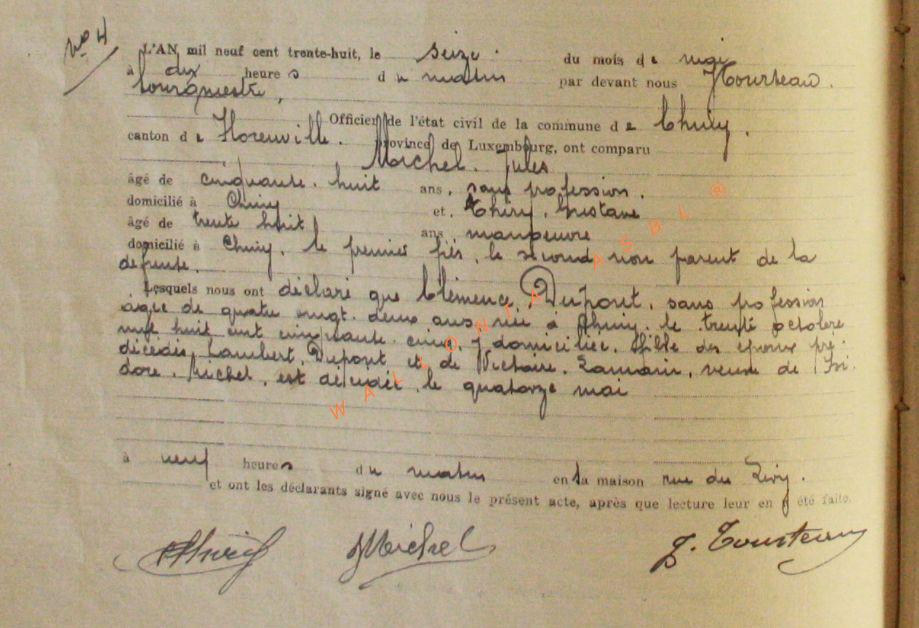 No 4
L'AN mil neuf cent trente-huit, le seize du mois de mai
à dix heures du matin par devant nous
bourgmestre,
Officier de l'état civil de la commune de Chiny.
canton de Florenville. province de Luxembourg, ont comparu
Michel. Jules
âgé de cinquante. huit ans, sans profession.
domicilié à Chiny et. Thiry. Gustave
âgé de trente huit ans manoeuvre
domicilié à Chiny. le premier fils, le second non parent de la
défunte.
Lesquels nous ont déclaré que Clémence Dupont. sans profession
agée de quatre vingt. deux ans née à Chiny. le trente octobre
mil huit cent cinquante. cinq. y domiciliée. fille des époux pré-
décédés, Lambert, Dupont et de Victoire. veuve de Isi-
dore. Michel. est décédée. le quatorze mai
à neuf heures du matin en la maison rue du
et ont les déclarants signé avec nous le présent acte, après que lecture leur en a été faite.
Thiry JMichel
WALLONIA ASBL ©